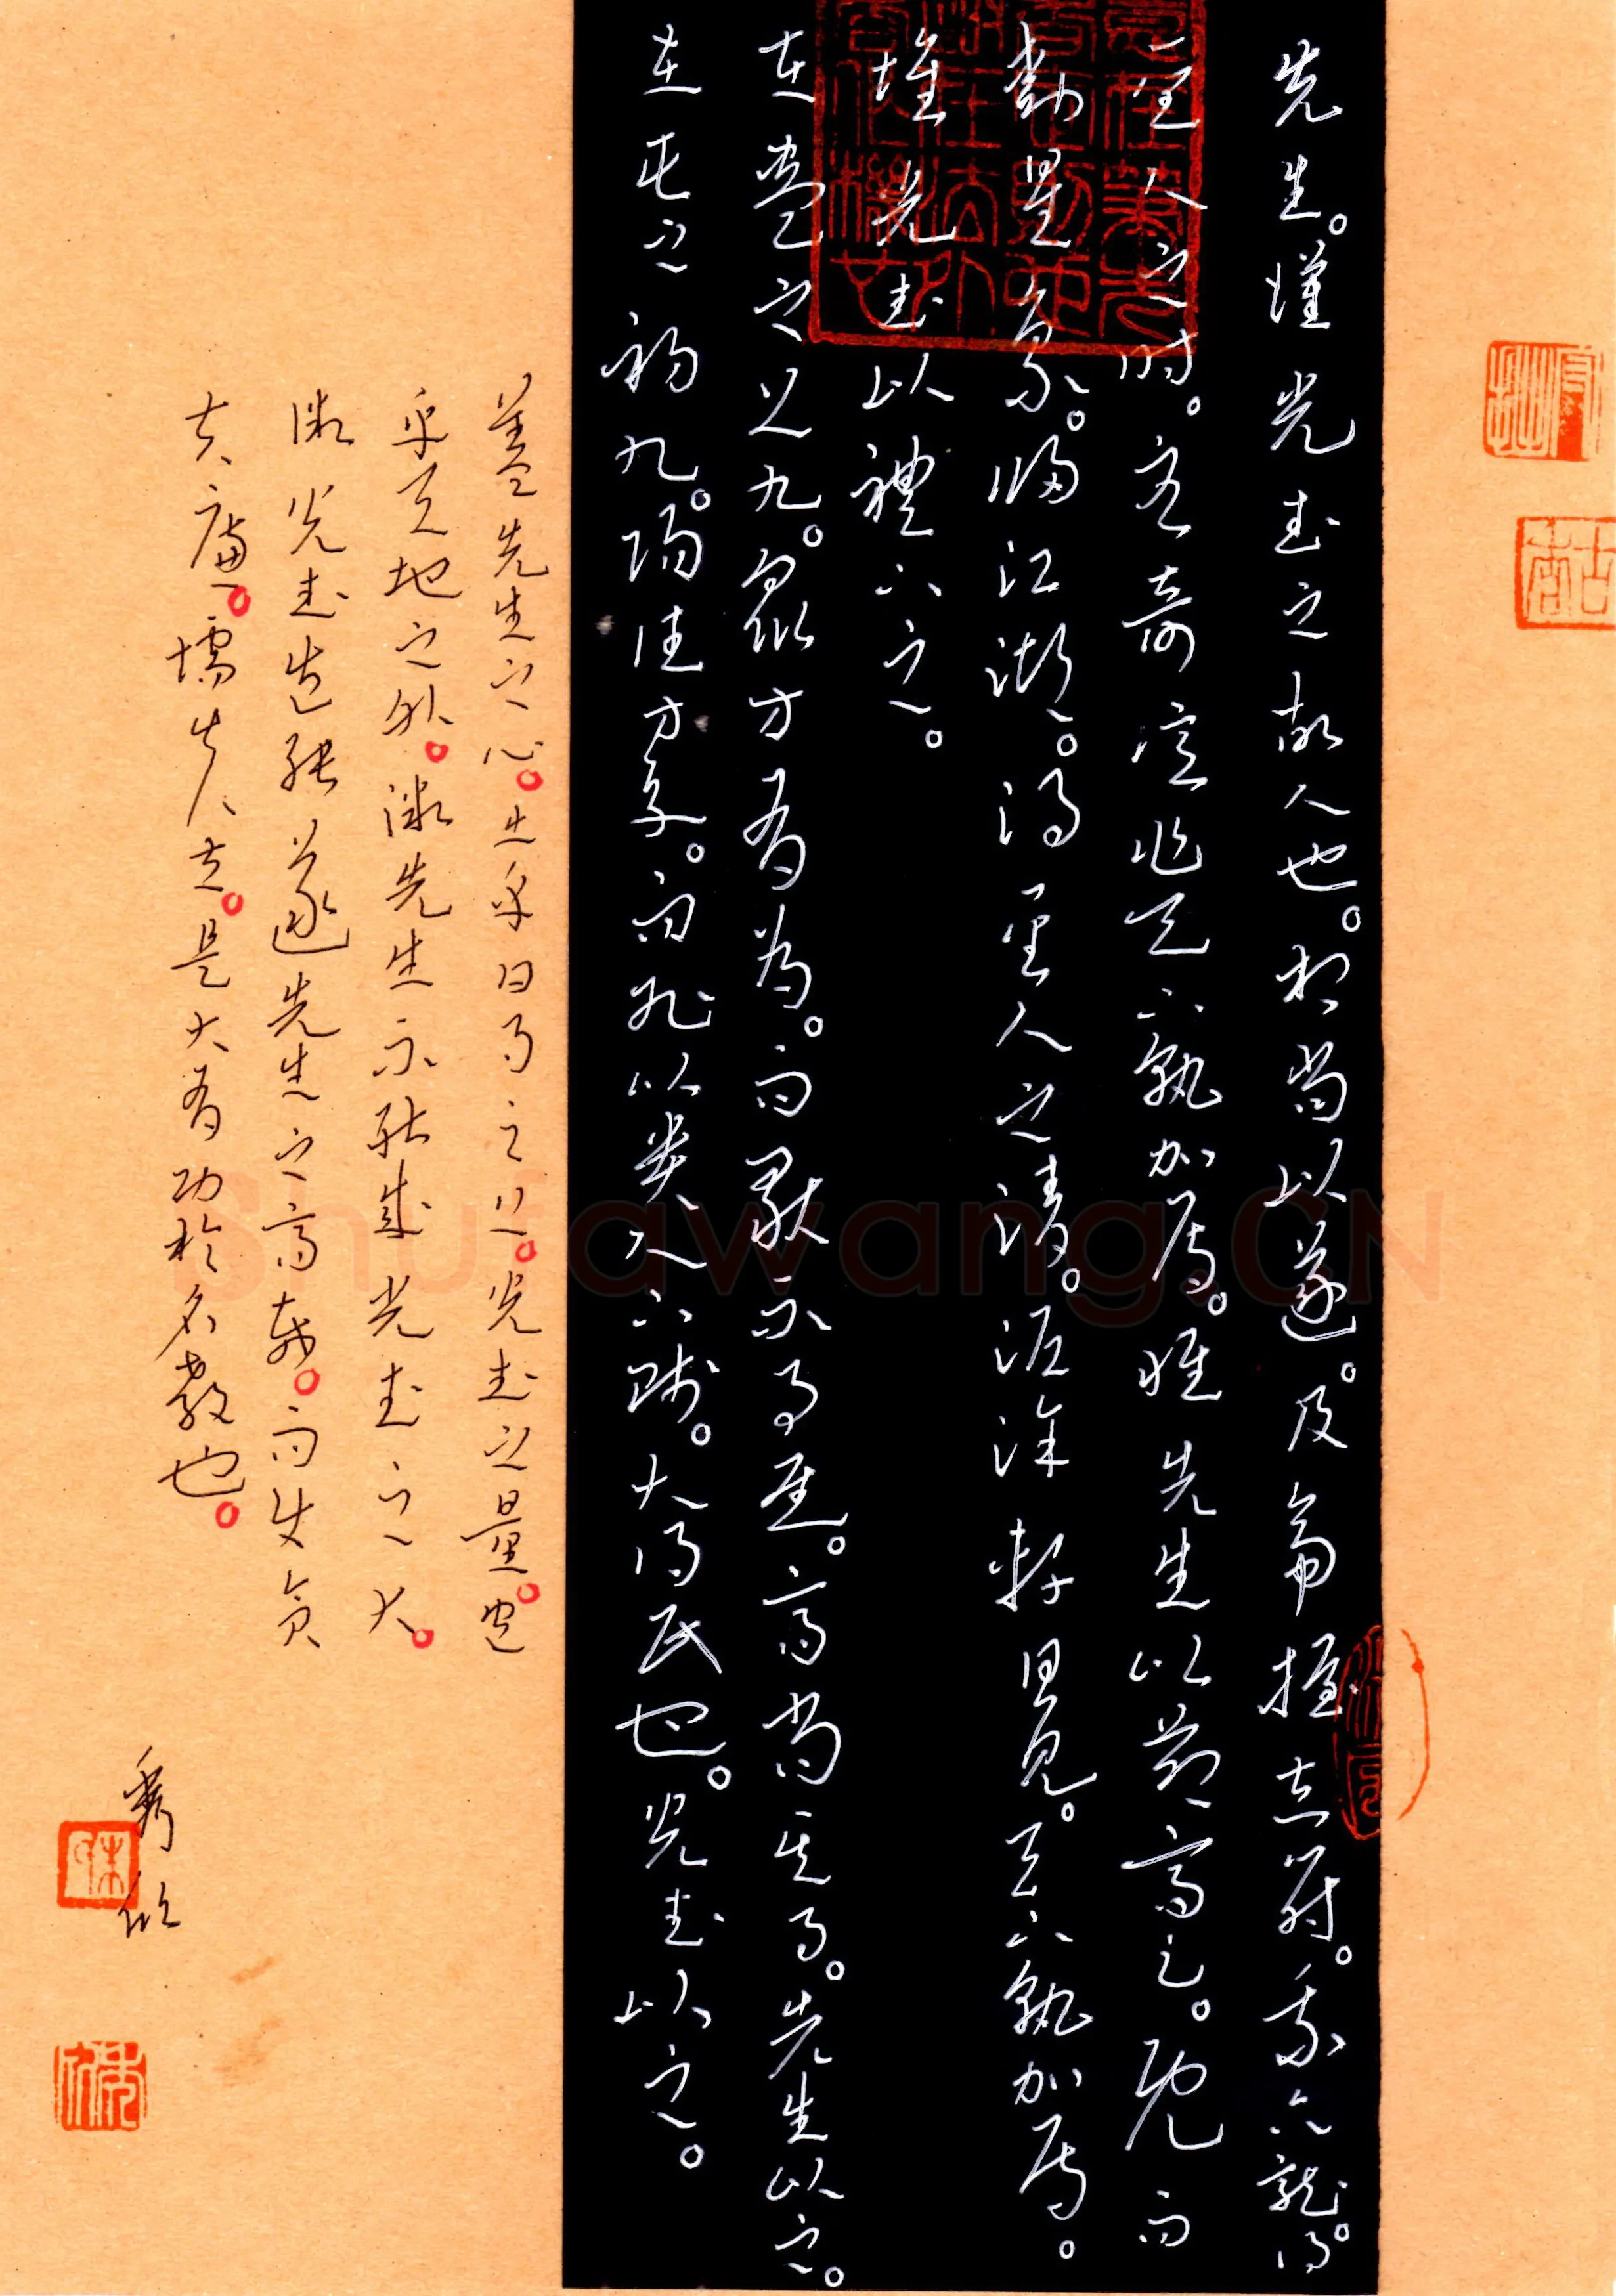 先生。漢光武之故人也。相尚以道。及帝握赤符。乘六龍。得
聖人之時。臣妾億兆天下孰加焉。惟先生以節高之。既而
動星象。歸江湖。得聖人之清。泥塗軒冕。天下孰加焉。
惟光武以禮下之。
在蠱之上九。眾方有為。而獨不事王侯。高尚其事。先生以之。
在屯之初九。陽德方亨。而能以貴下賤。大得民也。光武以之。
蓋先生之心。出乎日月之上。光武之量。包
乎天地之外。微先生不能成光武之大。
微光武豈能遂先生之高哉。而使貪
夫廉。懦夫立。是大有功於名教也。
Shufawang.CN